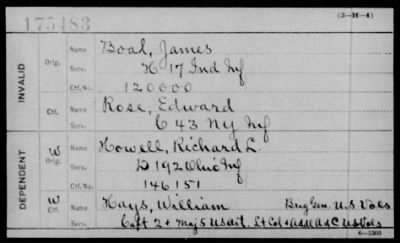 175483
(3—H—4)
INVALID
Orig.
Name Boal, James
Serv. H 17 Ind Inf
Ctf. No. 120000
Ctf.
Name Rose, Edward
Serv. C 43 Ny Inf
DEPENDENT
W Orig.
Name Howell, Richard L.
Serv. D 192 Ohio Inf
Ctf. No. 146151
W Ctf.
Name Hays, William Brig Gen. U.S Vols
Serv. Capt 2 & Maj 5 US art. Lt Col &
6—1303